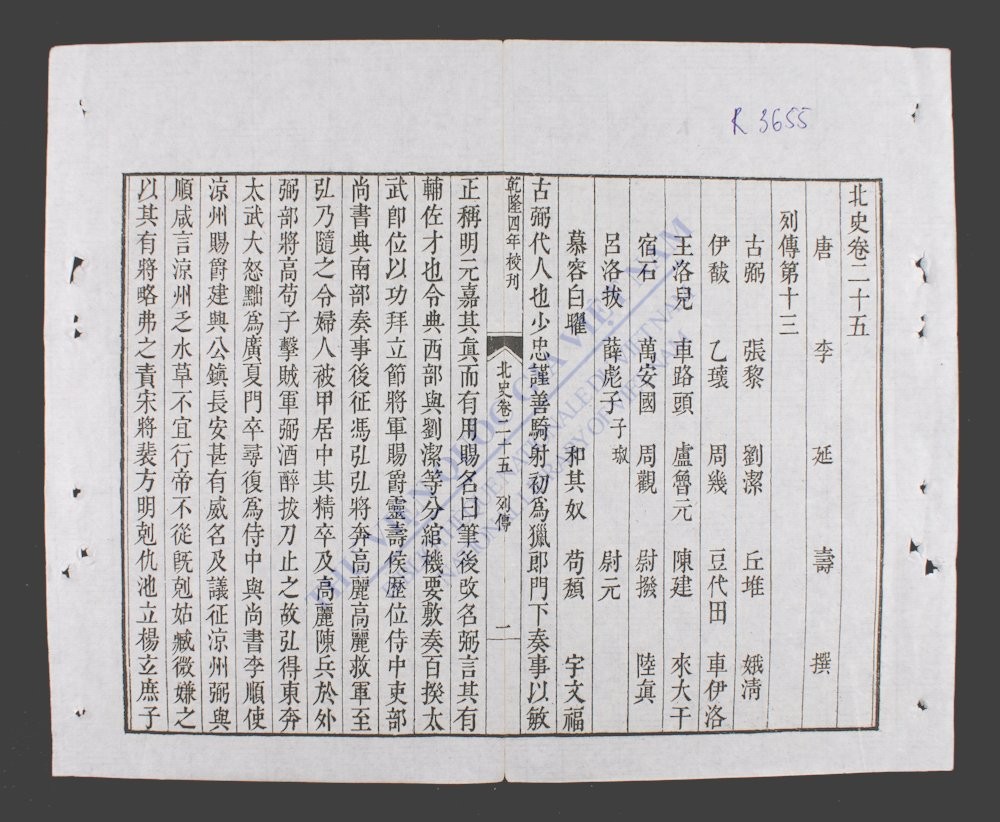 R 3655
北史卷二十五
唐 李 延 壽 撰
列傳第十三
古弼 張黎 劉潔 丘堆 娥淸
伊馛 乙瓌 周幾 豆代田 車伊洛
王洛兒 車路頭 盧魯元 陳建 來大干
宿石 萬安國 周觀 尉撥 陸眞
呂洛拔 薛彪子 子琡 尉元
慕容白曜 和其奴 苟頹 宇文福
古弼代人也少忠謹善騎射初爲獵郎門下奏事以敏
乾隆四年校刊
北史卷二十五 列傳
一
正稱明元嘉其眞而有用賜名曰筆後改名弼言其有
輔佐才也令典西部與劉潔等分綰機要敷奏百揆太
武卽位以功拜立節將軍賜爵靈壽侯歷位侍中吏部
尚書典南部奏事後征馮弘弘將奔高麗高麗救軍至
弘乃隨之令婦人被甲居中其精卒及高麗陳兵於外
弼部將高苟子擊賊軍弼酒醉拔刀止之故弘得東奔
太武大怒黜爲廣夏門卒尋復爲侍中與尚書李順使
涼州賜爵建興公鎮長安甚有威名及議征涼州弼與
順咸言涼州乏水草不宜行帝不從旣剋姑臧微嫌之
以其有將略弗之責宋將裴方明剋仇池立楊玄庶子
THƯ VIỆN QUỐC GIA VIỆT NAM
BIBLIOTHEQUE NATIONALE DU VIETNAM
NATIONAL LIBRARY OF VIETNAM